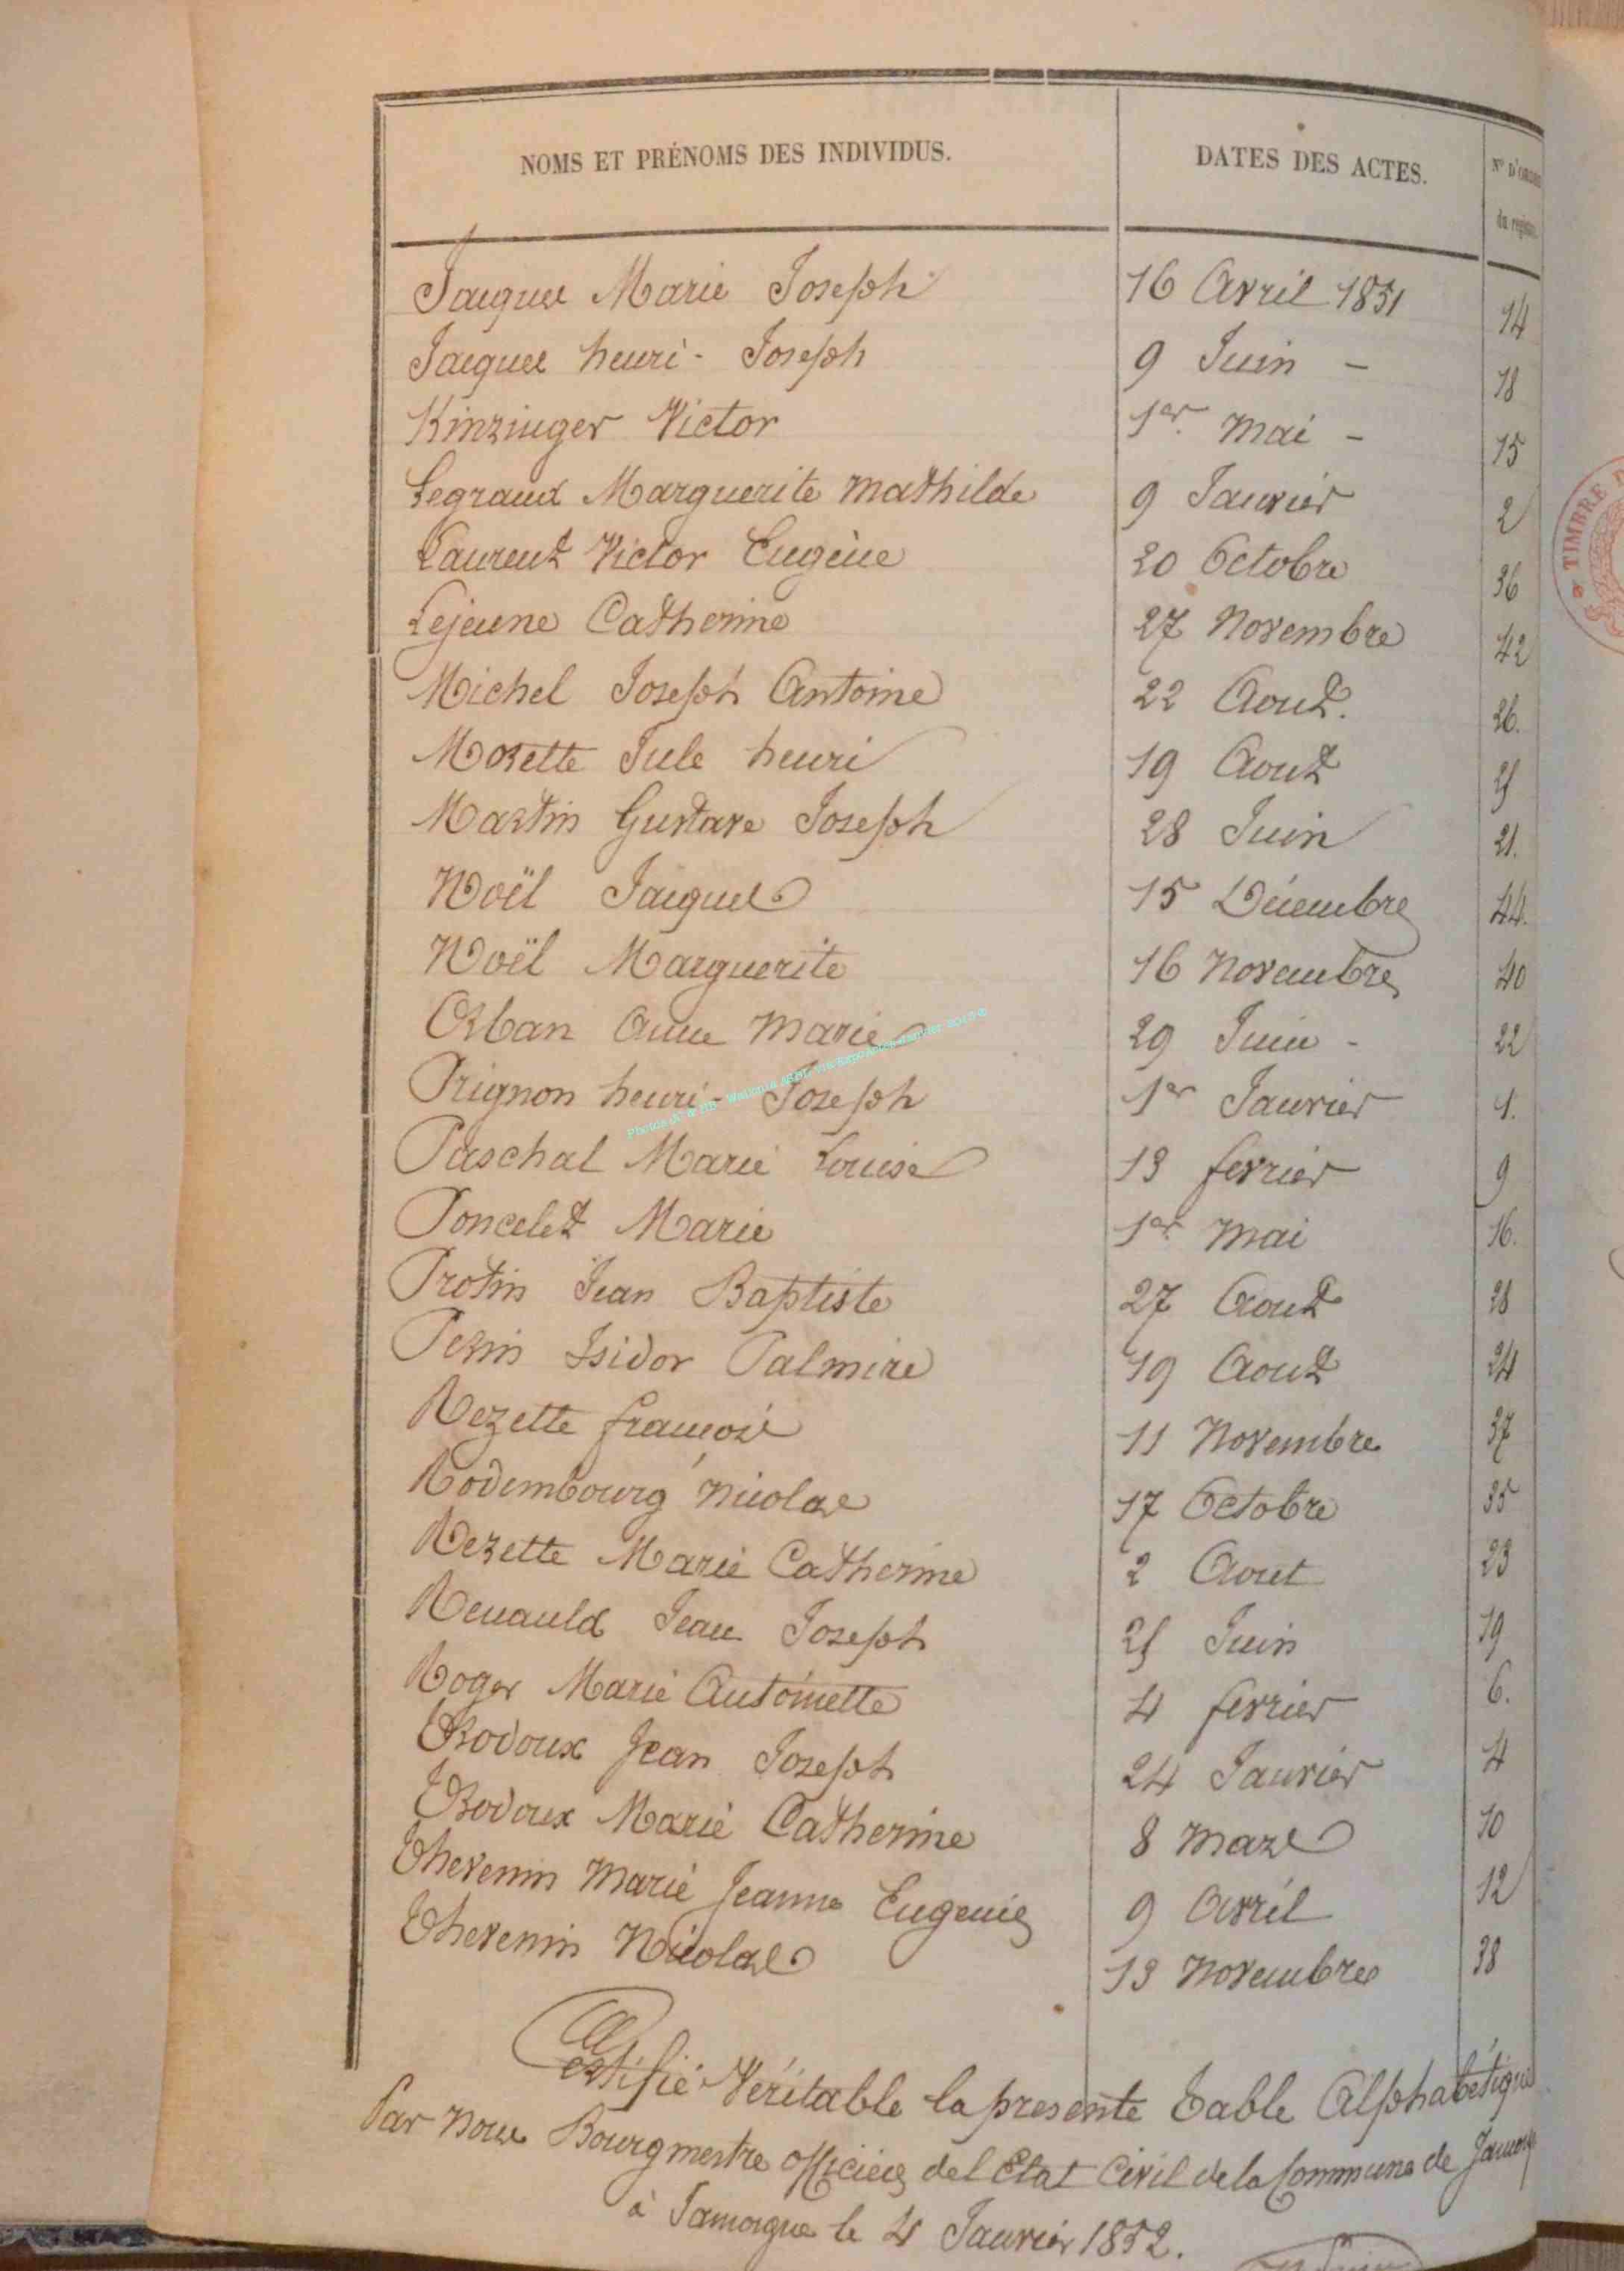 NOMS ET PRÉNOMS DES INDIVIDUS. DATES DES ACTES. N° D'ORDRE du registre.
Jacques Marie Joseph 16 Avril 1851 14
Jacques henri - Joseph 9 Juin - 18
Kinzinger Victor 1er Mai - 15
Legrand Marguerite Mathilde 9 Janvier 2
Laurent Victor Eugène 20 Octobre 36
Lejeune Catherine 27 Novembre 42
Michel Joseph Antoine 22 Aout. 26.
Morette Jule henri 19 Aout 25
Martin Gustave Joseph 28 Juin 21.
Noël Jacques 15 Décembre 44.
Noël Marguerite 16 Novembre 40
Orban Anne Marie 29 Juin - 22
Prignon henri - Joseph 1er Janvier 1.
Paschal Marie Louise 13 fevrier 9
Poncelet Marie 1er Mai 16.
Protin Jean Baptiste 27 Aout 28
Perin Isidor Palmire 19 Aout 24
Rezette françois 11 Novembre 37
Rodembourg Nicolas 17 Octobre 35
Rezette Marie Catherine 2 Aout 23
Renauld Jean Joseph 25 Juin 19
Roger Marie Antoinette 4 fevrier 6.
Trodoux Jean Joseph 24 Janvier 4
Trodoux Marie Catherine 8 Mars 10
Thevenin Marie Jeanne Eugenie 9 Avril 12
Thevenin Nicolas 13 Novembre 38
Certifié Véritable la presente Table Alphabétique
Par Nous Bourgmestre officier del Etat Civil de la Commune de Jamoigne
à Jamoigne le 4 Janvier 1852.
TIMBRE